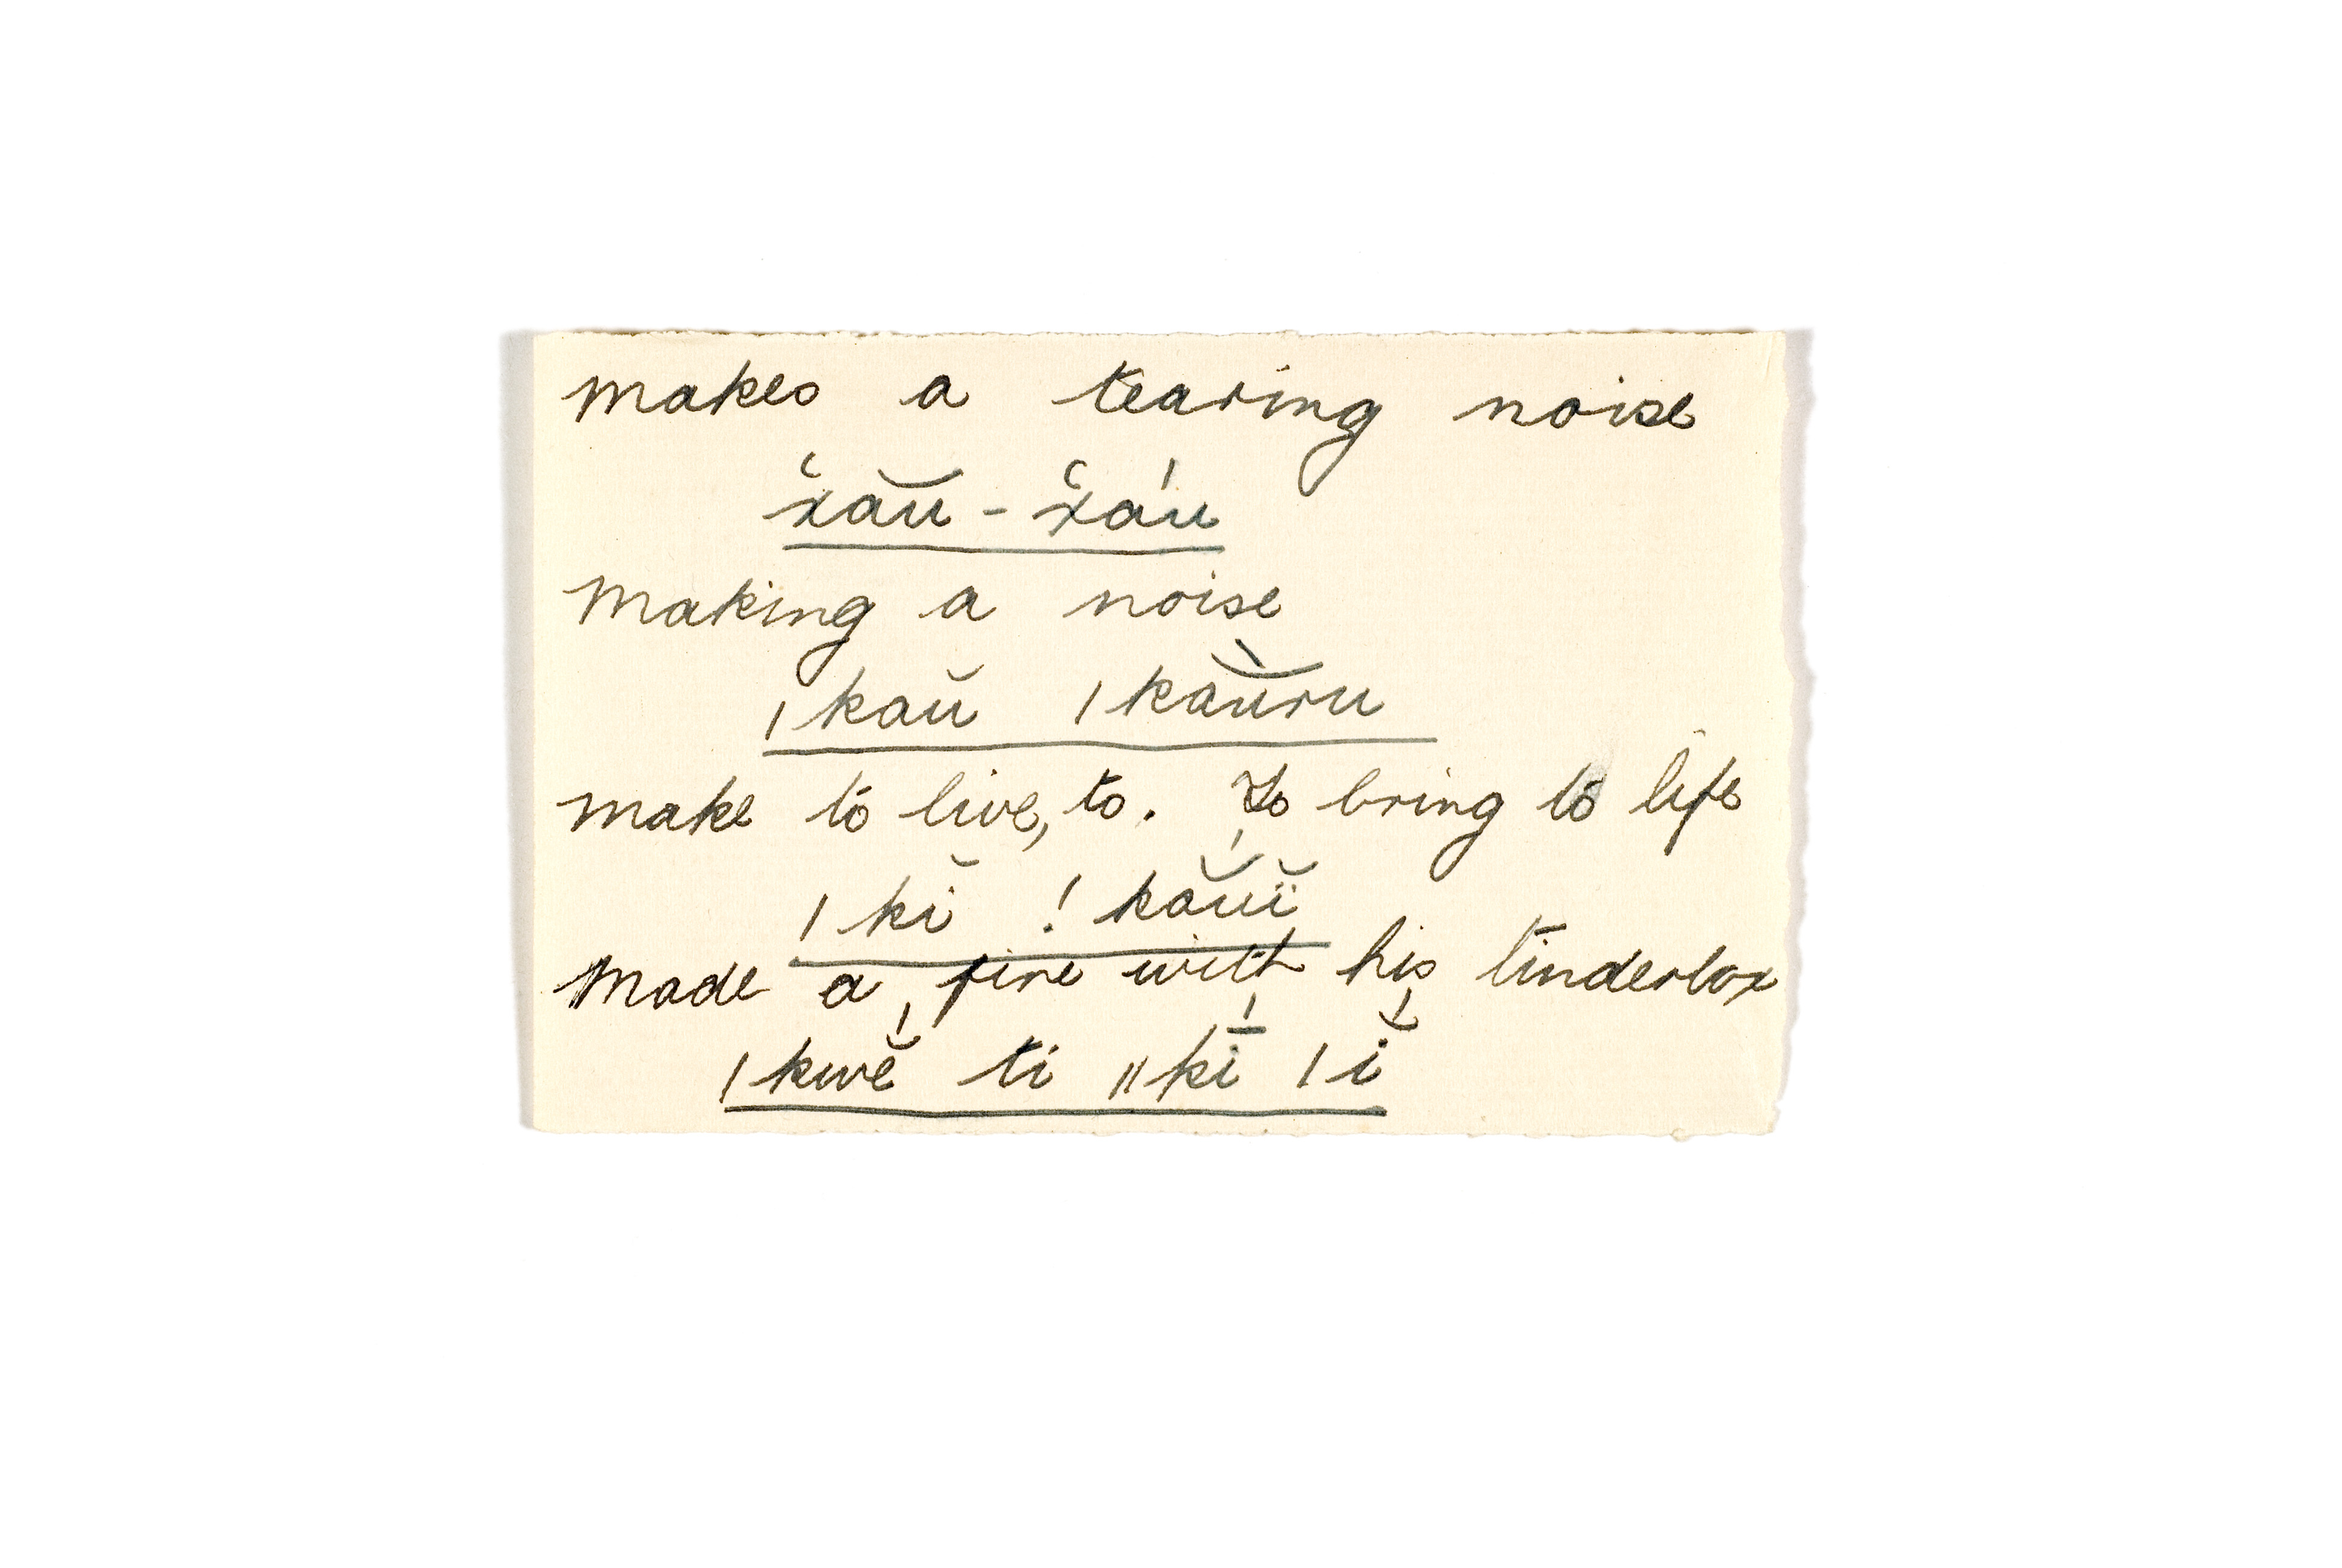 makes a tearing noise
x̌ʿăŭ - x̌ʿáu
making a noise
ǀkaŭ ǀkăŭ̀ru
make to live, to. To bring to life
ǀkĭ !kắŭï
made a fire with his tinderbox
ǀkwĕ́ ti ǁkī́ ǀĭ́